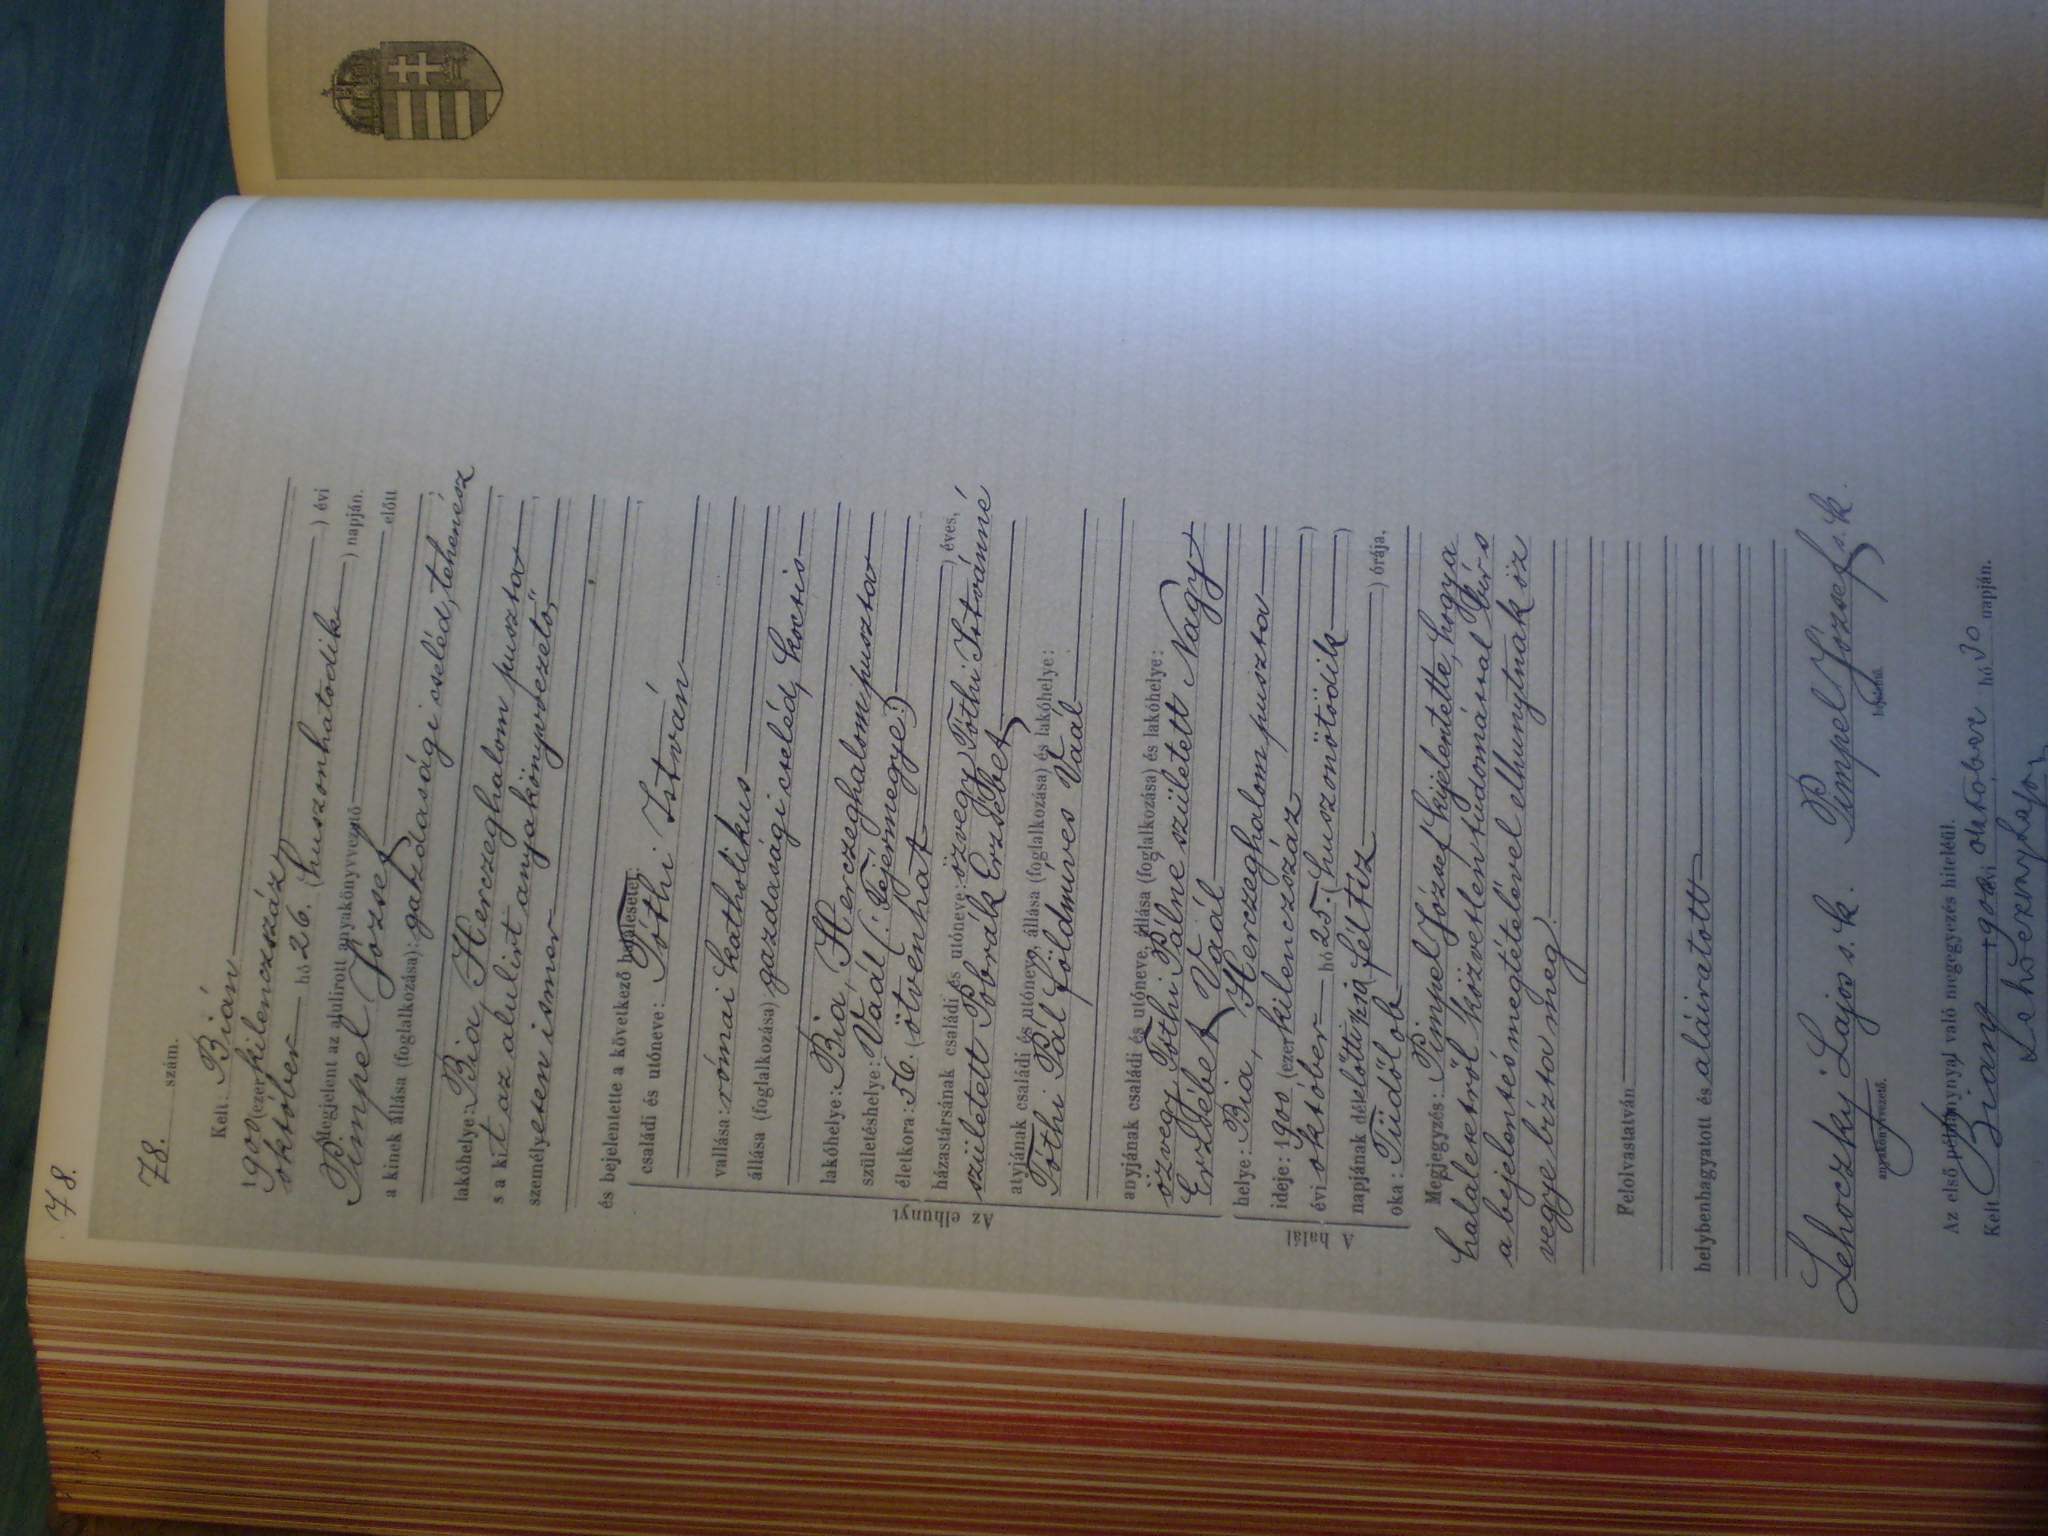 78.
78. szám.
Kelt: Bián
1900 (ezer kilenczszáz) évi
október hó 26. (huszonhatodik) napján.
Megjelent az alulirott anyakönyvvezető előtt
Pimpel József
a kinek állása (foglalkozása): gazdasági cseléd, tehenész
lakóhelye: Bia, Herczeghalom puszta,
s a kit az alulirt anyakönyvvezető,
személyesen ismer
és bejelentette a következő halálesetet:
családi és utóneve: Tóthi István
vallása: római katholikus
állása (foglalkozása) gazdasági cseléd, kocsis
lakóhelye: Bia, Herczeghalom puszta
születéshelye: Vaál (: Fejérmegye :)
életkora: 56. (ötvenhat) éves,
házastársának családi és utóneve: özvegy Tóthi Istvánné
született Pobrák Erzsébet
atyjának családi és utóneve, állása (foglalkozása) és lakóhelye:
Tóthi Pál földmíves Vaál
anyjának családi és utóneve, állása (foglalkozása) és lakóhelye:
özvegy Tóthi Pálné született Nagy
Erzsébet, Vaál
Az elhunyt
helye: Bia, Herczeghalom puszta
ideje: 1900 (ezer kilenczszáz)
évi október hó 25. (huszonötödik)
napjának délelőtti féltíz) órája,
oka: Tüdőlob
A halál
Megjegyzés: Pimpel József kijelentette, hogy a
halálesetről közvetlen tudomással bír s
a bejelentés megtételével elhunytnak öz
vegye bízta meg.
Felolvastatván
helybenhagyatott és aláiratott
Lehoczky Lajos s. k. Pimpel József s. k.
anyakönyvvezető. bejelentő.
Az első példánynyal való megegyezés hiteléül.
Kelt Bián, 1900 évi október hó 30 napján.
Lehoczky Lajos